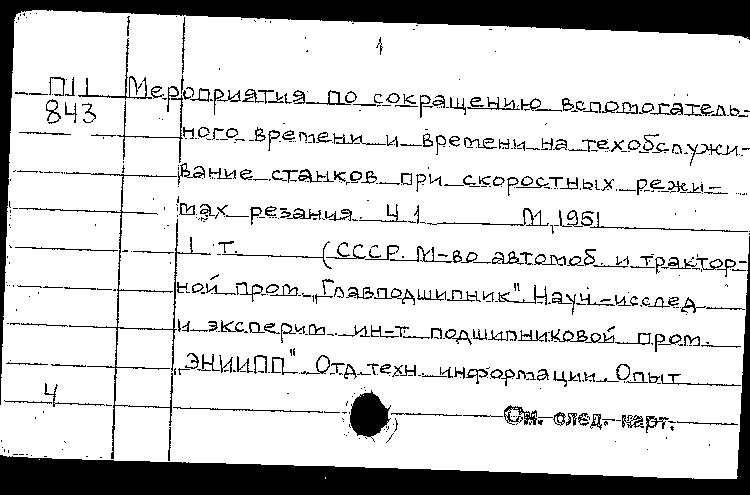 1
П11 Мероприятия по сокращению вспомогатель-
843 ного времени и времени на техобслужи-
вание станков при скоростных режи-
мах резания. Ч 1 М, 1951
1 т. (СССР. М-во автомоб. и трактор-
ной пром. „Главподшипник". Науч.-исслед
и эксперим. ин-т подшипниковой пром.
„ЭНИИПП". Отд. техн. информации. Опыт
4
См. след. карт.